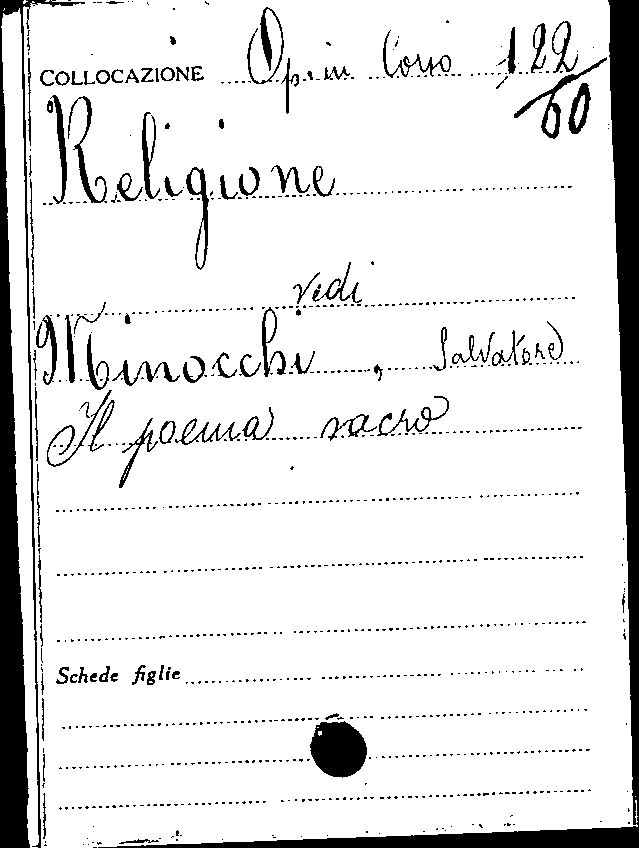 COLLOCAZIONE Op. in Corso 122/60
Religione
vedi
Minocchi, Salvatore
Il poema sacro
Schede figlie